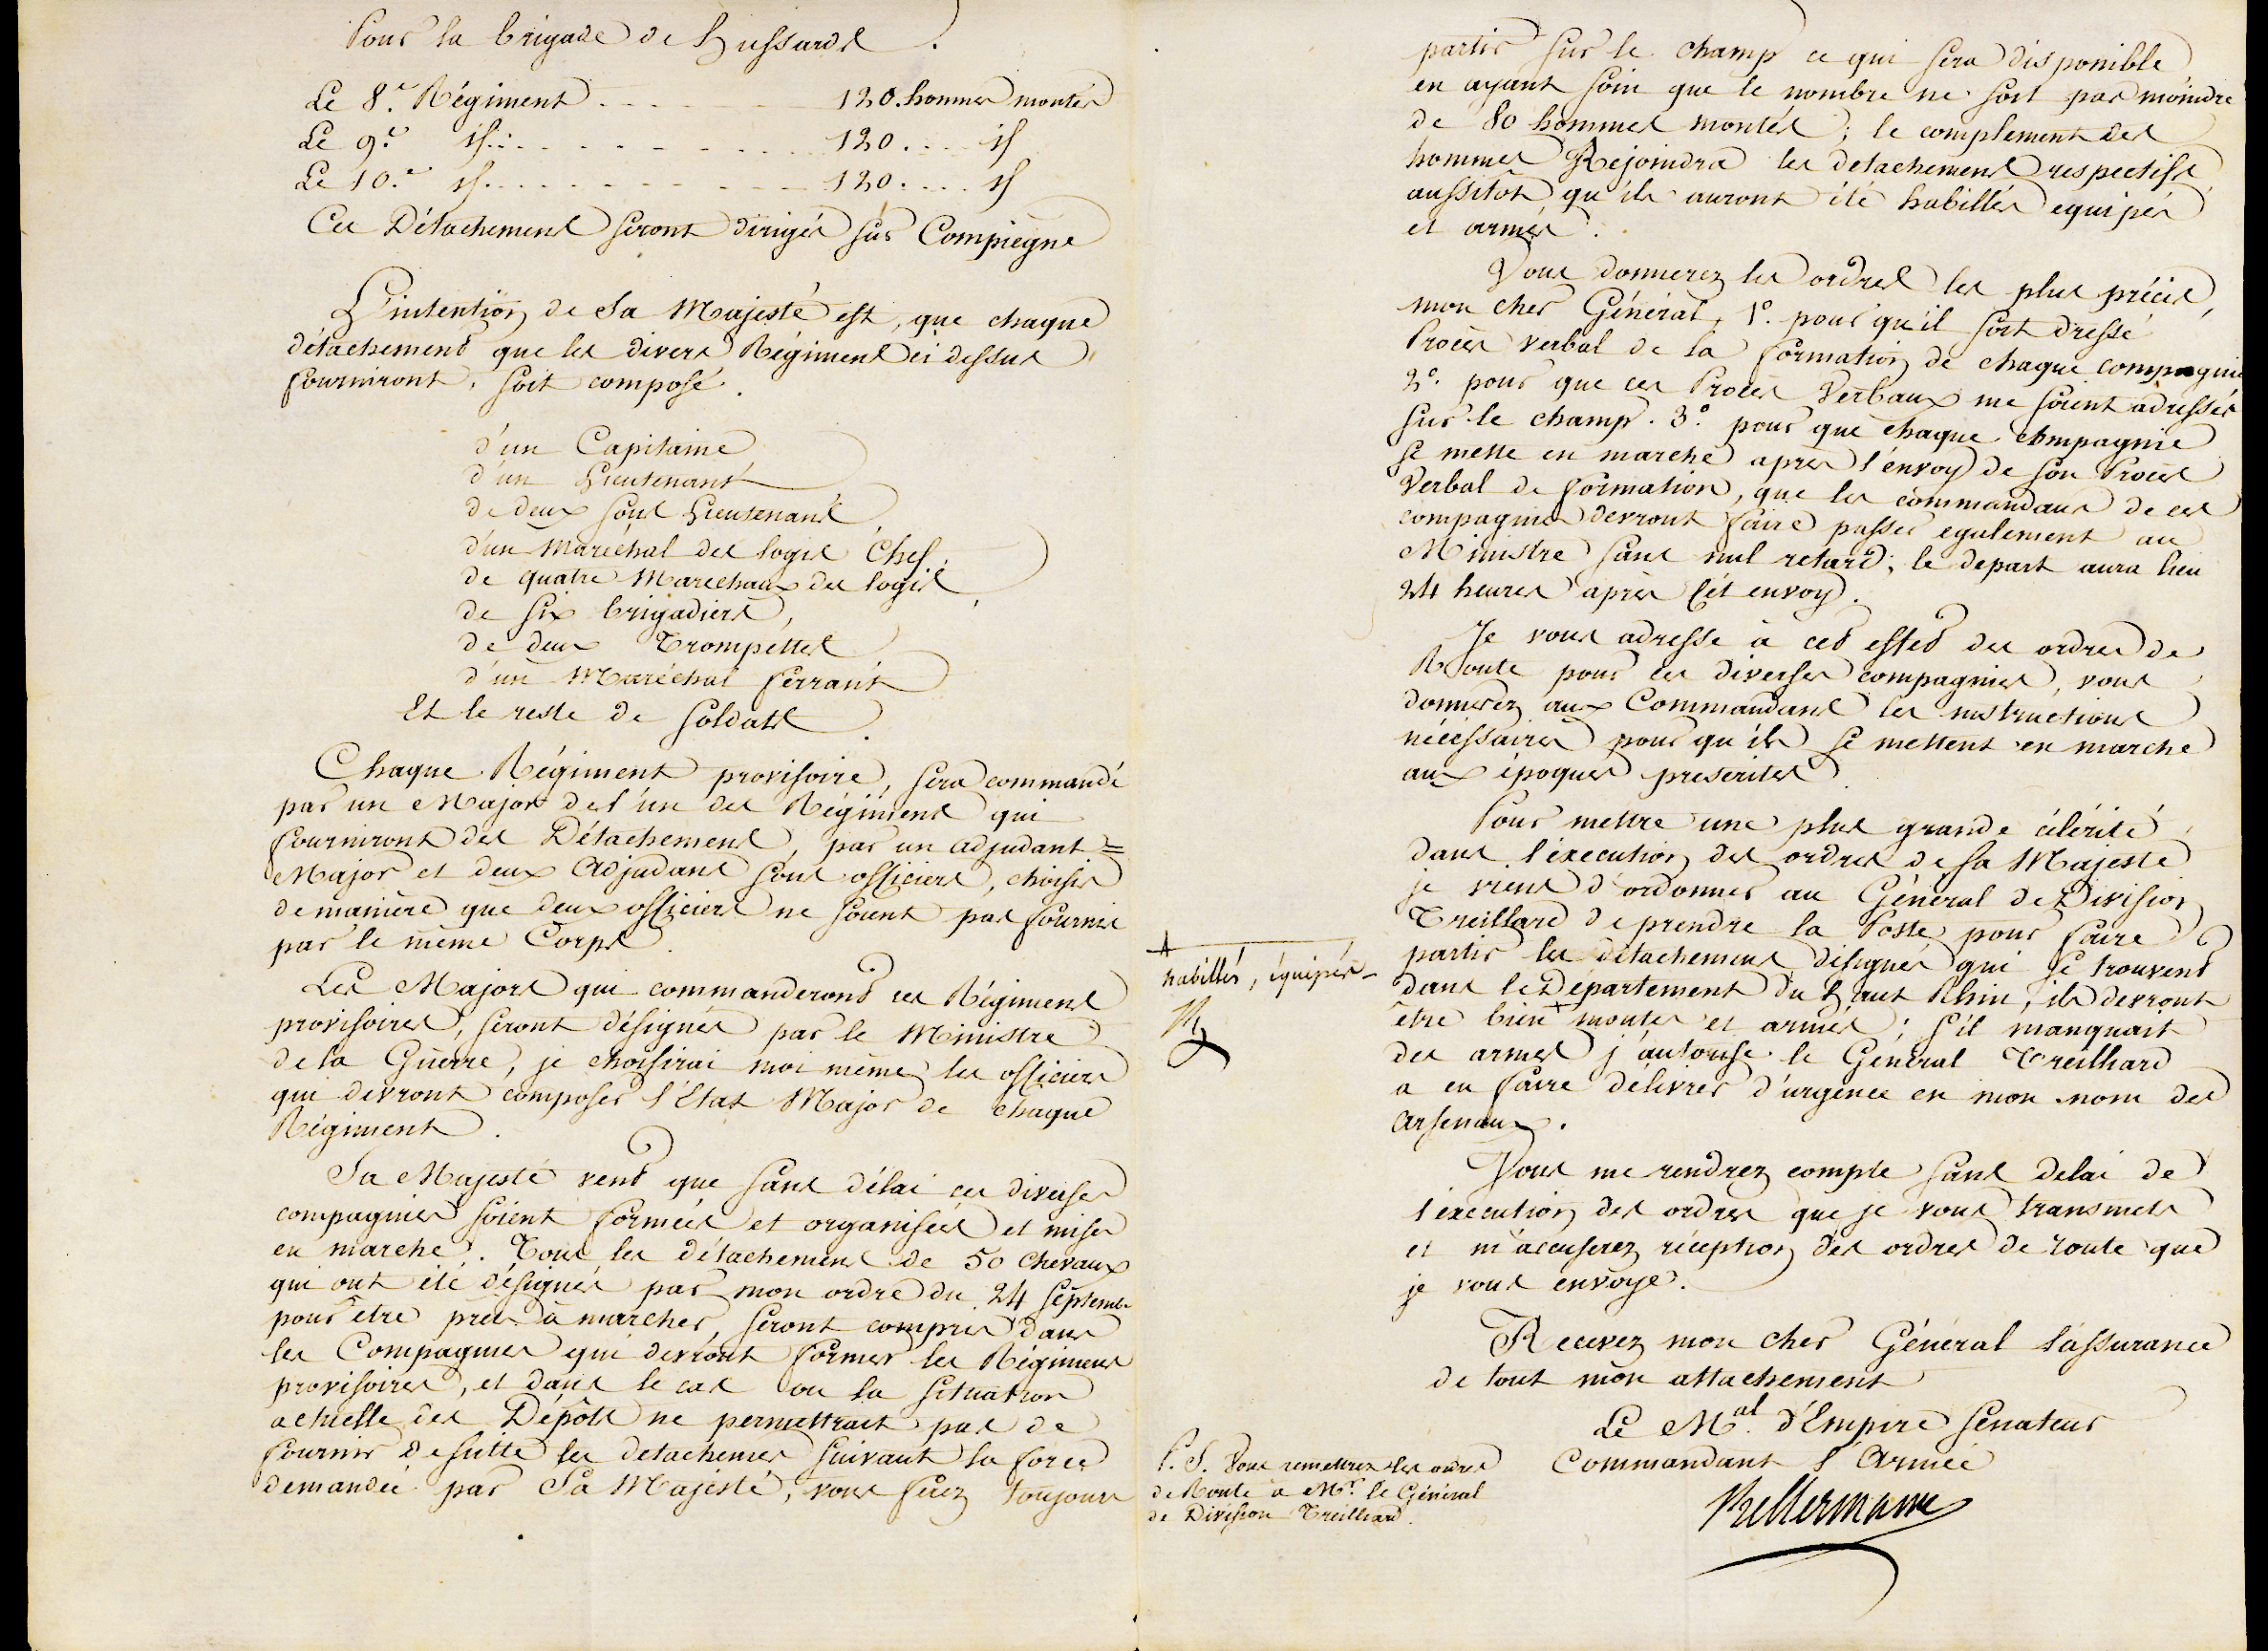 Pour la brigade de Hussards.
Le 8.e Régiment . . . . 120. hommes montés
Le 9.e id . . . . . . . . 120 . . . . id
Le 10.e id . . . . . . . . 120 . . . . id
Ces Détachemens seront dirigés sur Compiegne
L'intention de Sa Majesté est, que chaque
détachement que les divers Régimens ci dessus
fourniront, soit composé.
d'un Capitaine
d'un Lieutenant
de deux sous Lieutenans,
d'un Maréchal des logis Chef,
de quatre Marechaux des logis,
de six brigadiers,
de deux Trompettes
d'un Maréchal ferrant
Et le reste de soldats.
Chaque Régiment provisoire, sera commandé
par un Major de l'un des Régimens qui
fourniront des Détachemens, par un adjudant =
Major et deux Adjudans sous officiers, choisis
de manière que deux officiers ne soient pas fournis
par le même Corps.
Les Majors qui commanderont ces Régimens
provisoires, seront désignés par le Ministre
de la Guerre, je choisirai moi même les officiers
qui devront composer l'Etat Major de chaque
Régiment.
Sa Majesté veut que sans délai ces diverses
compagnies soient formées et organisées et mises
en marche. Tous les détachemens de 50 chevaux
qui ont été désignés par mon ordre du 24 septemb.
pour être prets à marcher, seront compris dans
les Compagnies qui devront former les Régimens
provisoires, et dans le cas ou la situation
actuelle des Dépôts ne permettrait pas de
fournir de suitte les detachemens suivant la force
demandée par Sa Majesté, vous ferez toujours
partir sur le champ ce qui sera disponible
en ayant soin que le nombre ne soit pas moindre
de 80 hommes montés; le complement des
hommes Rejoindra les detachemens respectifs
aussitôt qu'ils auront été habillés equipés
et armés.
Vous donnerez les ordres les plus précis,
mon cher Général, 1.° pour qu'il soit dressé
Procès verbal de la formation de chaque compagnie
2.° pour que ces Procès Verbaux me soient adressés
sur le champ. 3.° pour que chaque compagnie
se mette en marche après l'envoy de son Procès
Verbal de formation, que les commandans de ces
compagnies devront faire passer egalement au
Ministre sans nul retard; le depart aura lieu
24 heures après cet envoy.
Je vous adresse à cet effet des ordres de
Route pour ces diverses compagnies, vous
donnerez aux Commandans les instructions
nécessaires pour qu'ils se mettent en marche
aux époques prescrites.
Pour mettre une plus grande célérité
dans l'execution des ordres de sa Majesté
je viens d'ordonner au Général de Division
Treillard de prendre la Poste pour faire
partir les détachemens désignés qui se trouvent
dans le Département du haut Rhin, ils devront
être bien + montés et armés; s'il manquait
des armes j'autorise le Général Treilhard
a en faire délivrer d'urgence en mon nom des
arsenaux.
+ habillés, équipés
K
Vous me rendrez compte sans delai de
l'execution des ordres que je vous transmets
et m'accuserez réception des ordres de route que
je vous envoye.
Recevez mon cher Général l'assurance
de tout mon attachement
Le M.al d'Empire Senateur
Commandant l'Armée
Kellermann
P.S. Vous remettrez les ordres
de Route à Mr. le Général
de Division Treillard.